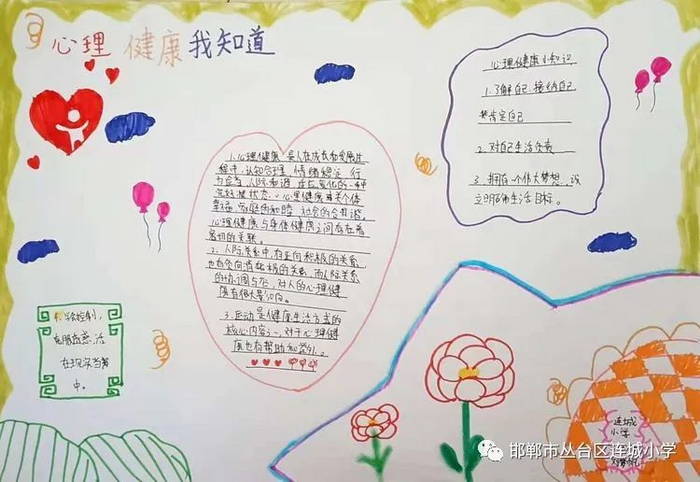 心理 健康 我知道
心理健康小知识
1. 了解自己，接纳自己
肯定自己
2. 对自己生活负责
3. 拥有一个伟大梦想，设
立明确生活目标。
1. 心理健康，是人在成长和发展过
程中，认知合理、情绪稳定、行
为适当、人际和谐、适应变化的一种
完好状态。心理健康事关个体
幸福，家庭和睦，社会的合和谐。
心理健康与身体健康之间存在着
密切的关联。
2. 人际关系中，有正向积极的关系，
也有负向消极的关系，而人际关系
的协调与否，对人的心理健
康有很大影响。
3. 运动是健康生活方式的
核心内容之一，对于心理健
康也有帮助和
控制，
活
在现实当
中。
连城
小学
邯郸市丛台区连城小学